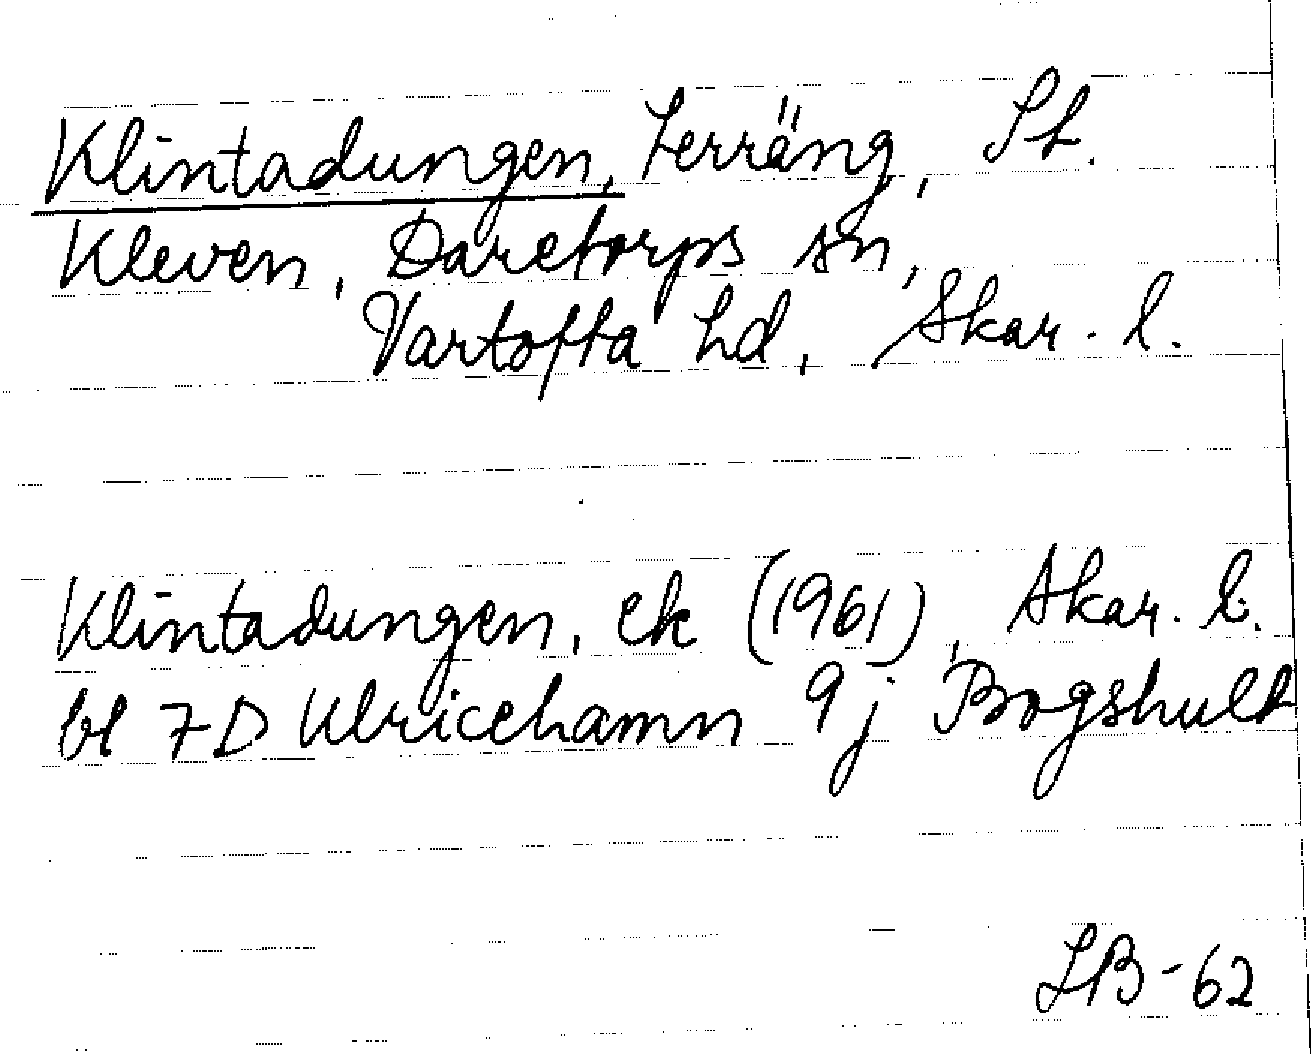 Klintadungen, terräng, St.
Kleven, Daretorps sn,
Vartofta hd, Skar. l.
Klintadungen, ek (1961), Skar. l.
bl 7D Ulricehamn 9j Bogshult
LB-62